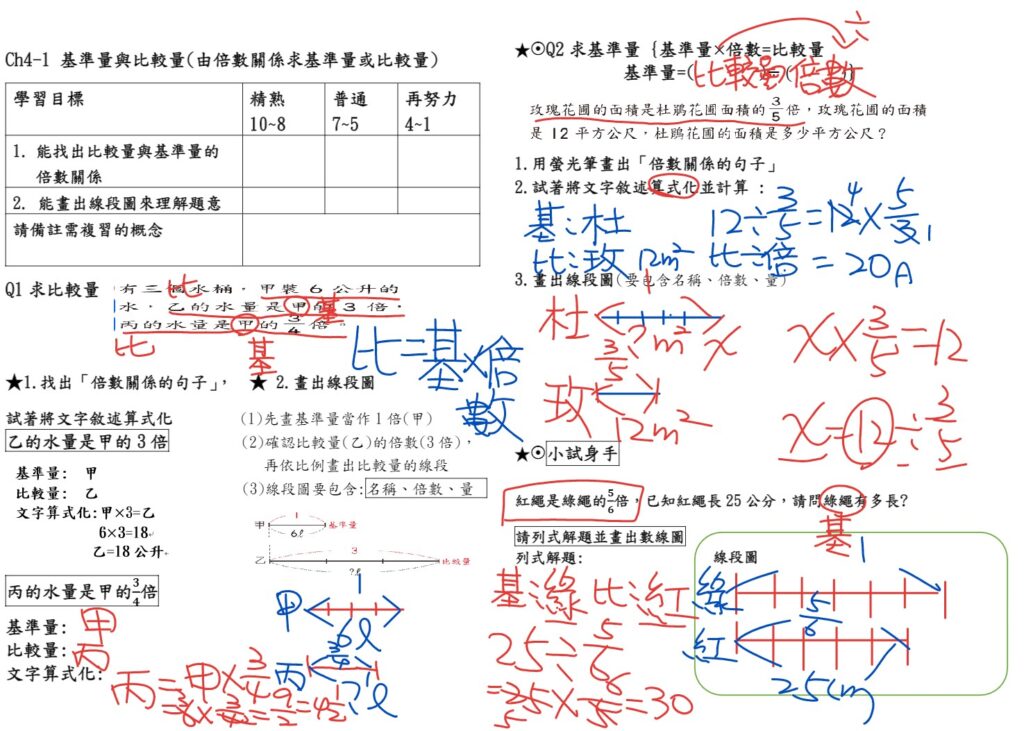 Ch4-1 基準量與比較量(由倍數關係求基準量或比較量)
學習目標 精熟 10~8 普通 7~5 再努力 4~1
1. 能找出比較量與基準量的倍數關係
2. 能畫出線段圖來理解題意
請備註需複習的概念
Q1 求比較量
有三個水桶，甲裝 6 公升的
水，乙的水量是甲的 3 倍，
丙的水量是甲的 3/4 倍。
比
基
比
基
比=基×倍數
★1.找出「倍數關係的句子」，
試著將文字敘述算式化
乙的水量是甲的 3 倍
基準量： 甲
比較量： 乙
文字算式化:甲×3=乙
6×3=18
乙=18 公升
丙的水量是甲的 3/4 倍
基準量： 甲
比較量： 丙
文字算式化： 丙=甲×3/4
=9/2=4 1/2
★ 2.畫出線段圖
(1)先畫基準量當作 1 倍(甲)
(2)確認比較量(乙)的倍數(3 倍)，
再依比例畫出比較量的線段
(3)線段圖要包含:名稱、倍數、量
1
甲 基準量
6ℓ
3
乙 比較量
?ℓ
1
甲
6ℓ
3/4
丙
?ℓ
★⊙Q2 求基準量 {基準量×倍數=比較量
基準量=( 比較量÷倍數
玫瑰花圃的面積是杜鵑花圃面積的 3/5 倍，玫瑰花圃的面積
是 12 平方公尺，杜鵑花圃的面積是多少平方公尺？
1.用螢光筆畫出「倍數關係的句子」
2.試著將文字敘述算式化並計算：
基:杜 12÷3/5=12×5/3
比:玫 12m² 比÷倍 =20A
3.畫出線段圖(要包含名稱、倍數、量)
杜 1 ?m² x
3/5
玫
12m²
x×3/5=12
x=12÷3/5
★⊙小試身手
紅繩是綠繩的 5/6 倍，已知紅繩長 25 公分，請問綠繩有多長?
基
請列式解題並畫出數線圖
列式解題:
基:綠 比:紅
25÷5/6
=25×6/5=30
線段圖
1
綠
5/6
紅
25cm